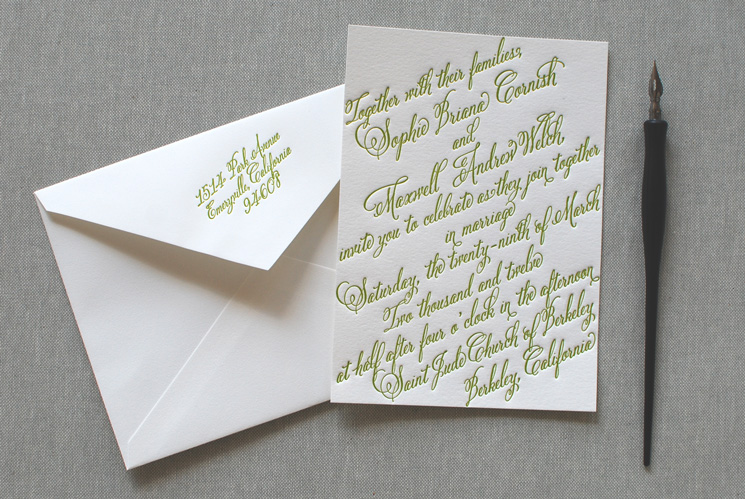 1514 Park Avenue
Emeryville, California
94608
Together with their families,
Sophie Briana Cornish
and
Maxwell Andrew Welsh,
invite you to celebrate as they join together
in marriage
Saturday, the twenty-ninth of March
Two thousand and twelve
at half after four o'clock in the afternoon
Saint Jude Church of Berkeley,
Berkeley, California